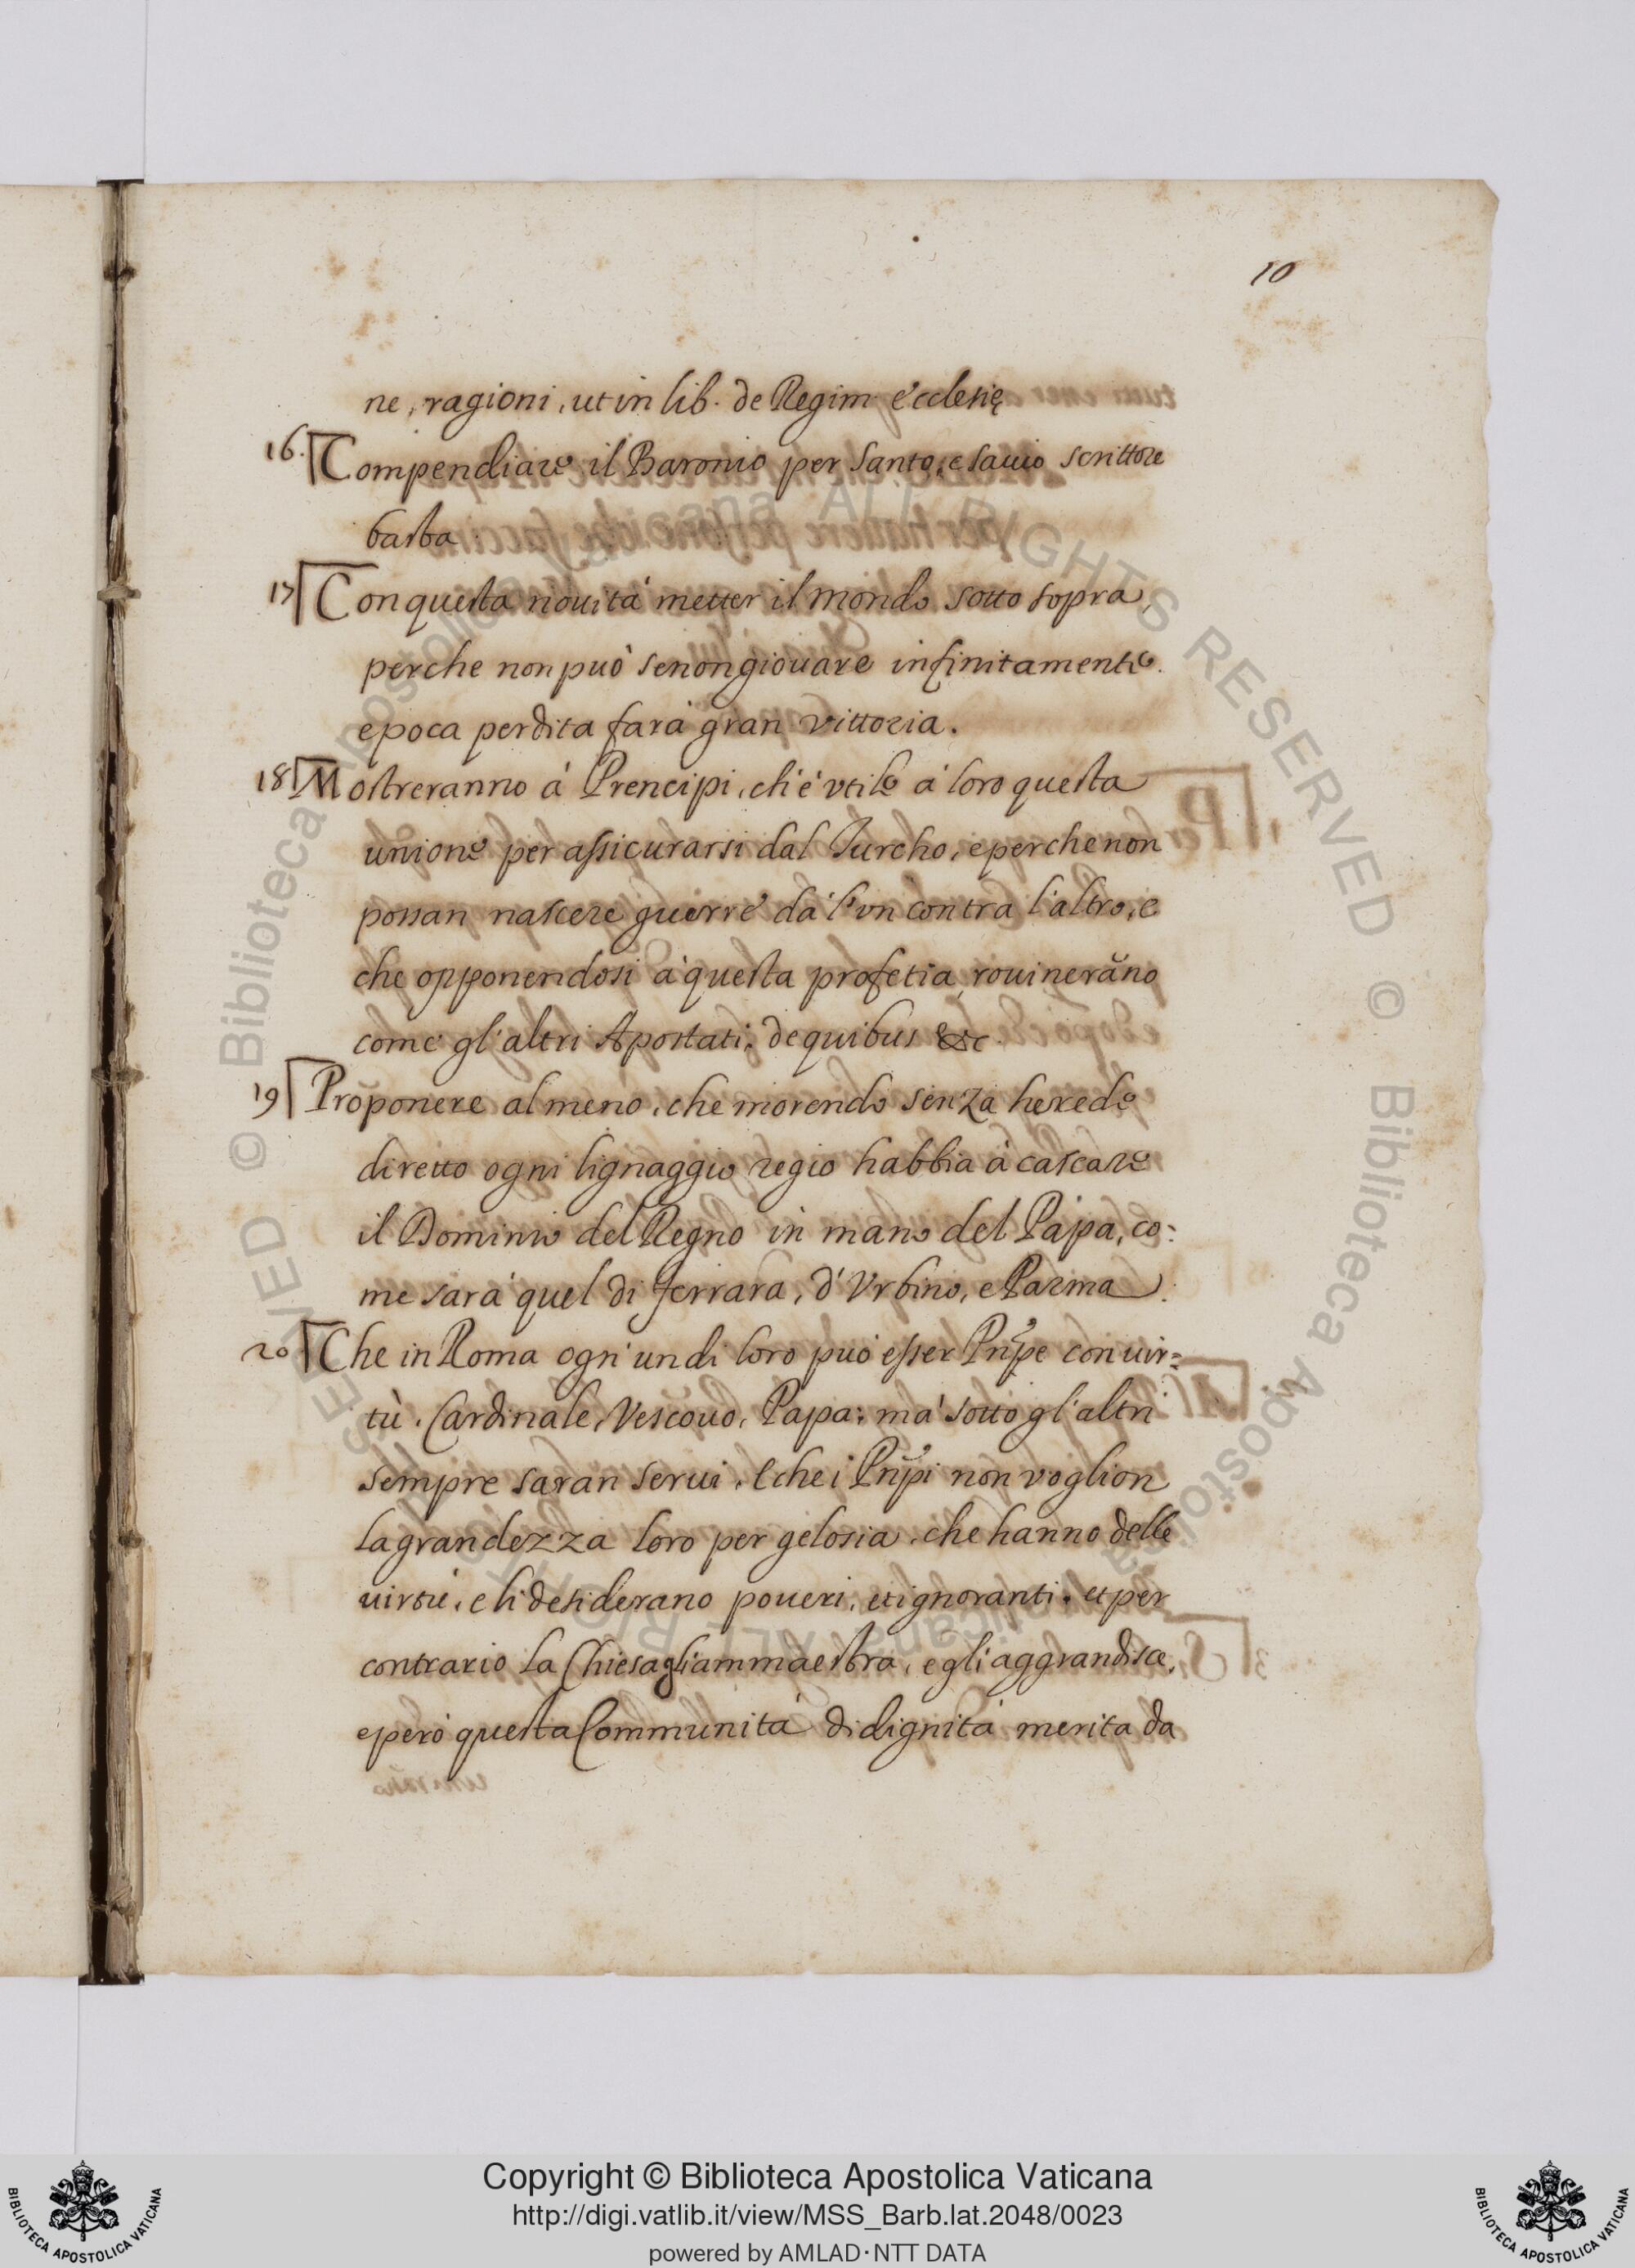 10
ne, ragioni, ut in lib. de Regim. ecclesię
16. Compendiare il Baronio per Santo, e sauio scrittore
basta
17 Con questa nouità metter il mondo sotto sopra,
perche non può se non giouare infinitamente.
e poca perdita farà gran vittoria.
18 Mostreranno à Prencipi, ch'è vtile à loro questa
unione per assicurarsi dal Turcho, e perche non
possan nascere guerre dà l'vn contra l'altro, e
che opponendosi à questa profetia, rouinerãno
come gl'altri Apostati, de quibus &c.
19 Proponere al meno, che morendo senza herede
diretto ogni lignaggio regio habbia à cascare
il Dominio del Regno in mano del Papa, co:
me sarà quel di Ferrara, d'Vrbino, e Parma.
20 Che in Roma ogn'un di loro può esser Prñpe con uir=
tù. Cardinale, Vescouo, Papa: mà sotto gl'altri
sempre saran serui. E che i Prñpi non voglion
la grandezza loro per gelosia, che hanno delle
uirtù, e li desiderano poueri, et ignoranti. et per
contrario la Chiesa gli ammaestra, e gli aggrandisce,
e però questa Communità di dignità merita da
© Biblioteca Apostolica Vaticana ALL RIGHTS RESERVED © Biblioteca Apostolica Vaticana ALL RIGHTS RESERVED
Copyright © Biblioteca Apostolica Vaticana
http://digi.vatlib.it/view/MSS_Barb.lat.2048/0023
powered by AMLAD·NTT DATA
BIBLIOTECA APOSTOLICA VATICANA
BIBLIOTECA APOSTOLICA VATICANA